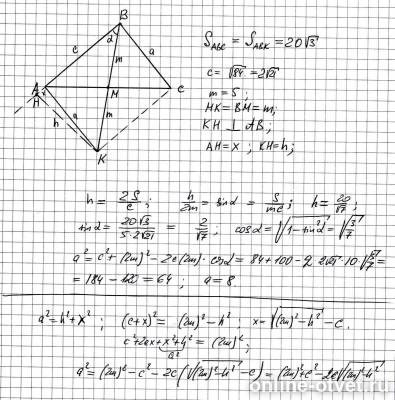 B
α
c
m
a
A
M
C
H
a
m
h
K
S_ABC = S_ABK = 20√3
c = √84 = 2√21
m = 5 ;
MK = BM = m;
KH ⊥ AB;
AH = x ; KH = h;
h = 2S/c ; h/2m = sinα = S/mc ; h = 20/√7 ;
sinα = 20√3/5·2√21 = 2/√7 ; cosα = √1-sin²α = √3/7
a² = c² + (2m)² - 2c(2m)·cosα = 84 + 100 - 2·2√21·10·√3/7 =
= 184 - 120 = 64 ; a = 8.
a² = h² + x² ; (c+x)² = (2m)² - h² ; x = √(2m)² - h² - c.
c² + 2cx + x² + h² = (2m)² ;
a²
a² = (2m)² - c² - 2c(√(2m)² - h² - c) = (2m)² + c² - 2c√(2m)² - h²
online-otvet.ru